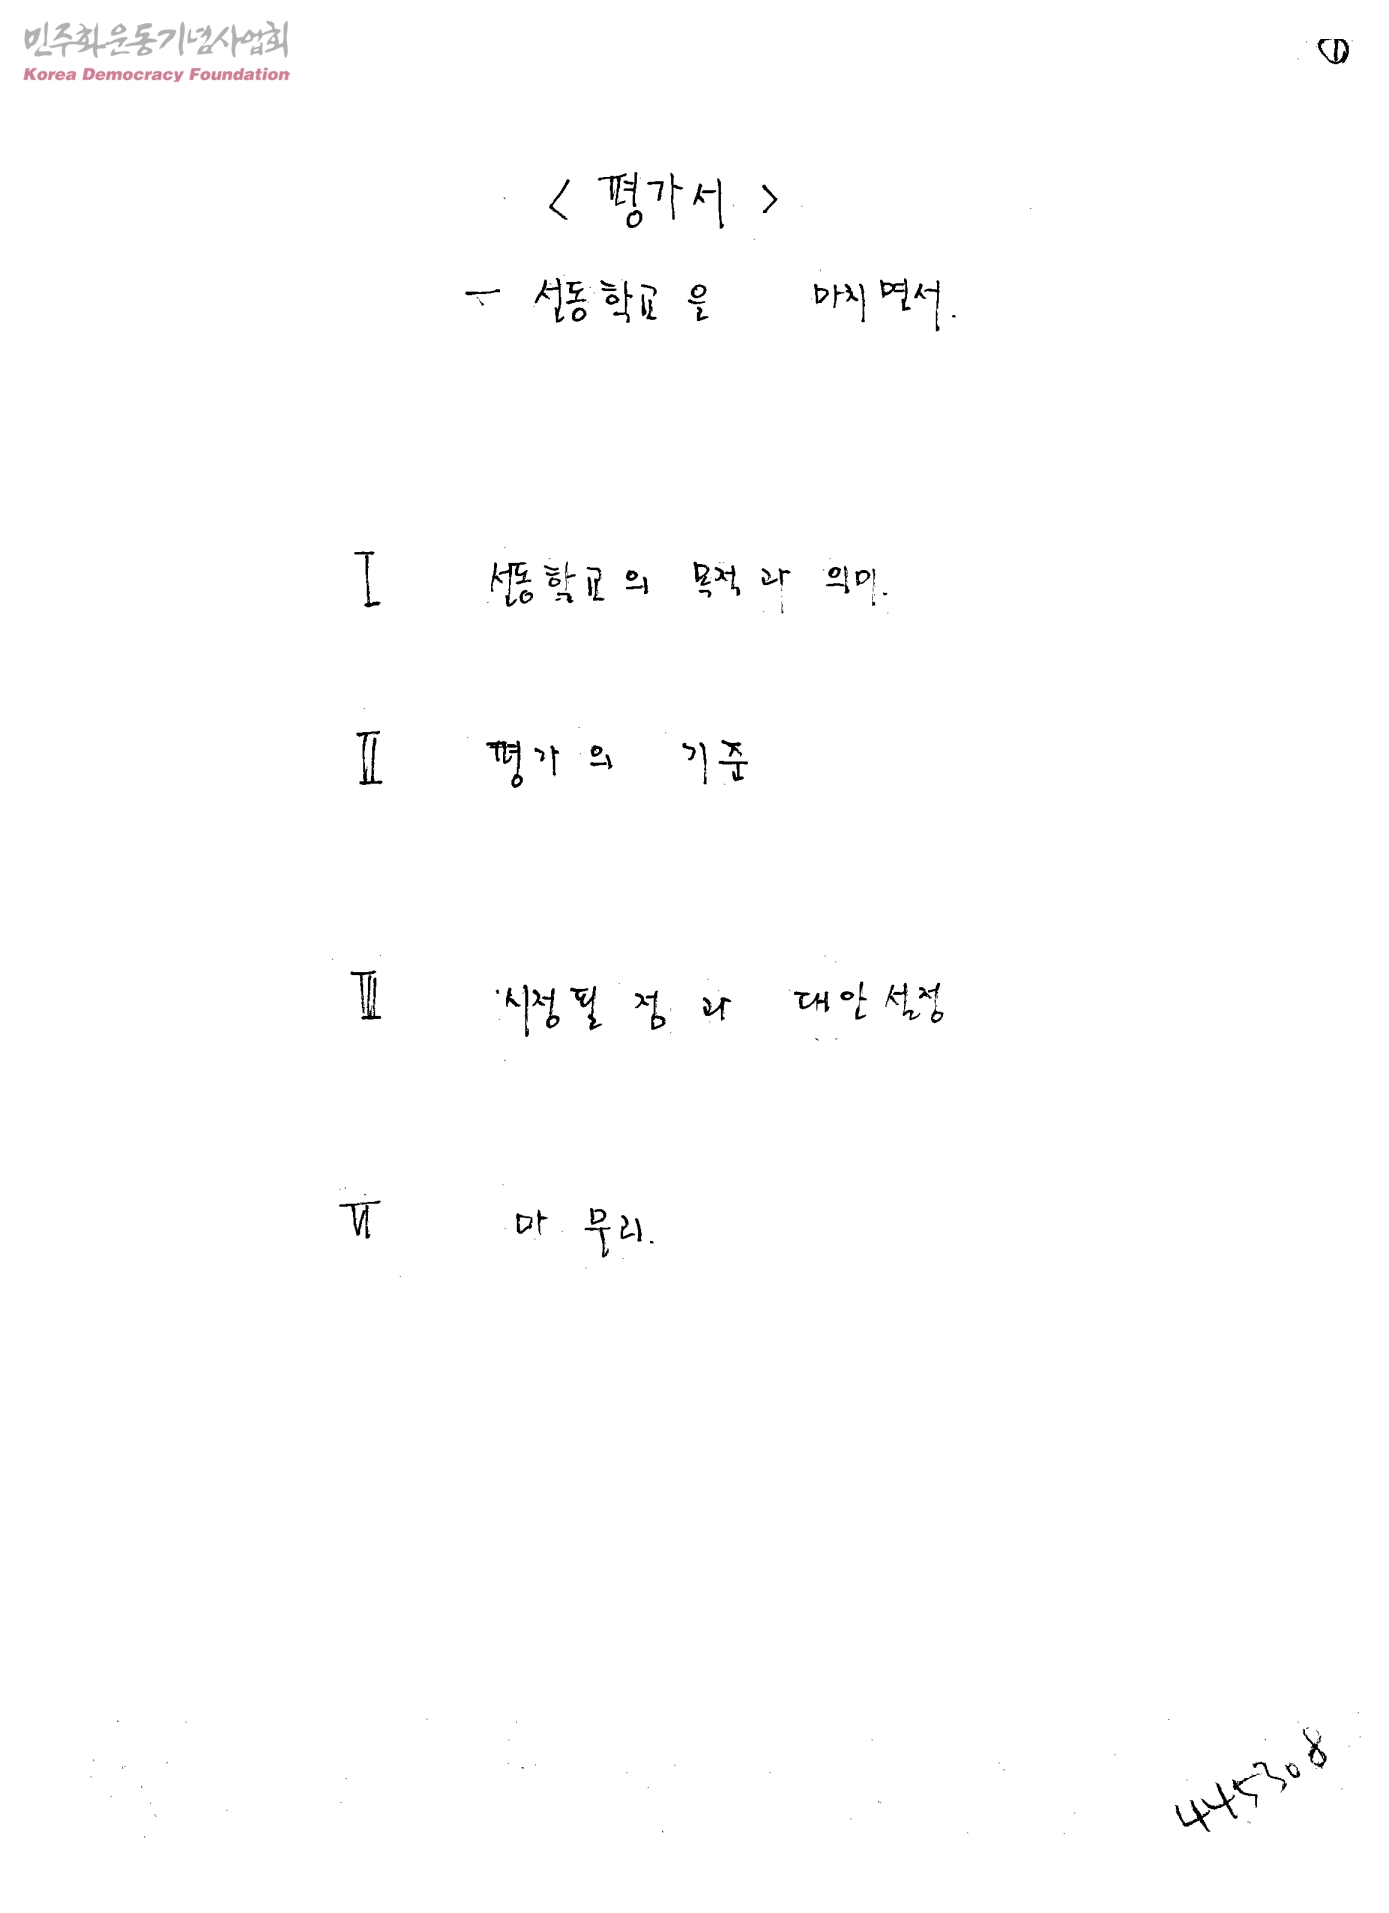 민주화운동기념사업회
Korea Democracy Foundation
①
< 평가서 >
- 선동학교을 마치면서.
I 선동학교의 목적과 의미.
II 평가의 기준
III 시정필 점과 대안설정
VI 마무리.
445308